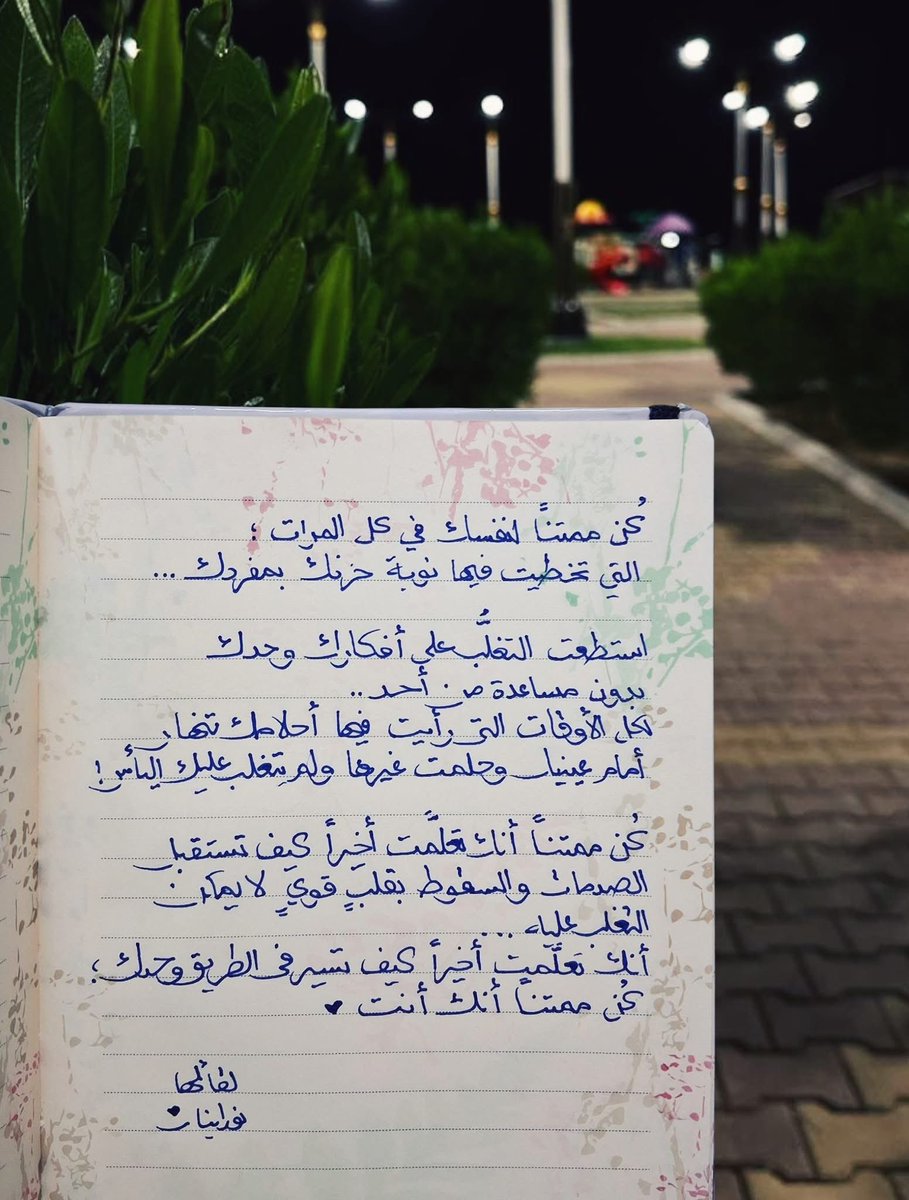 كُن ممتناً لنفسك في كل المرات ؛
التي تخطيت فيها نوبة حزنك بمفردك ...
استطعت التغلُّب على أفكارك وحدك
بدون مساعدة من أحد ..
لكل الأوقات التي رأيت فيها أحلامك تنهار
أمام عينيك وحلمت غيرها ولم يتغلب عليك اليأس !
كُن ممتناً أنك تعلَّمت أخيراً كيف تستقبل
الصدمات والسقوط بقلبٍ قويٍ لا يمكن
التغلب عليه ...
أنك تعلَّمت أخيراً كيف تسير في الطريق وحدك ؛
كُن ممتناً أنك أنت ♥
لقائلها